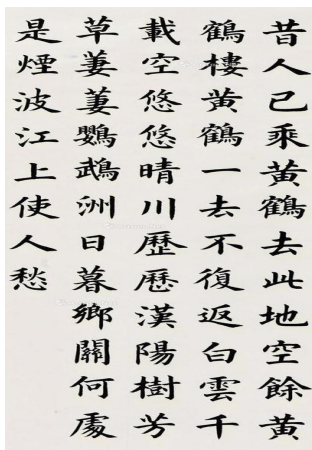 昔人已乘黃鶴去此地空餘黃
鶴樓黃鶴一去不復返白雲千
載空悠悠晴川歷歷漢陽樹芳
草萋萋鸚鵡洲日暮鄉關何處
是煙波江上使人愁